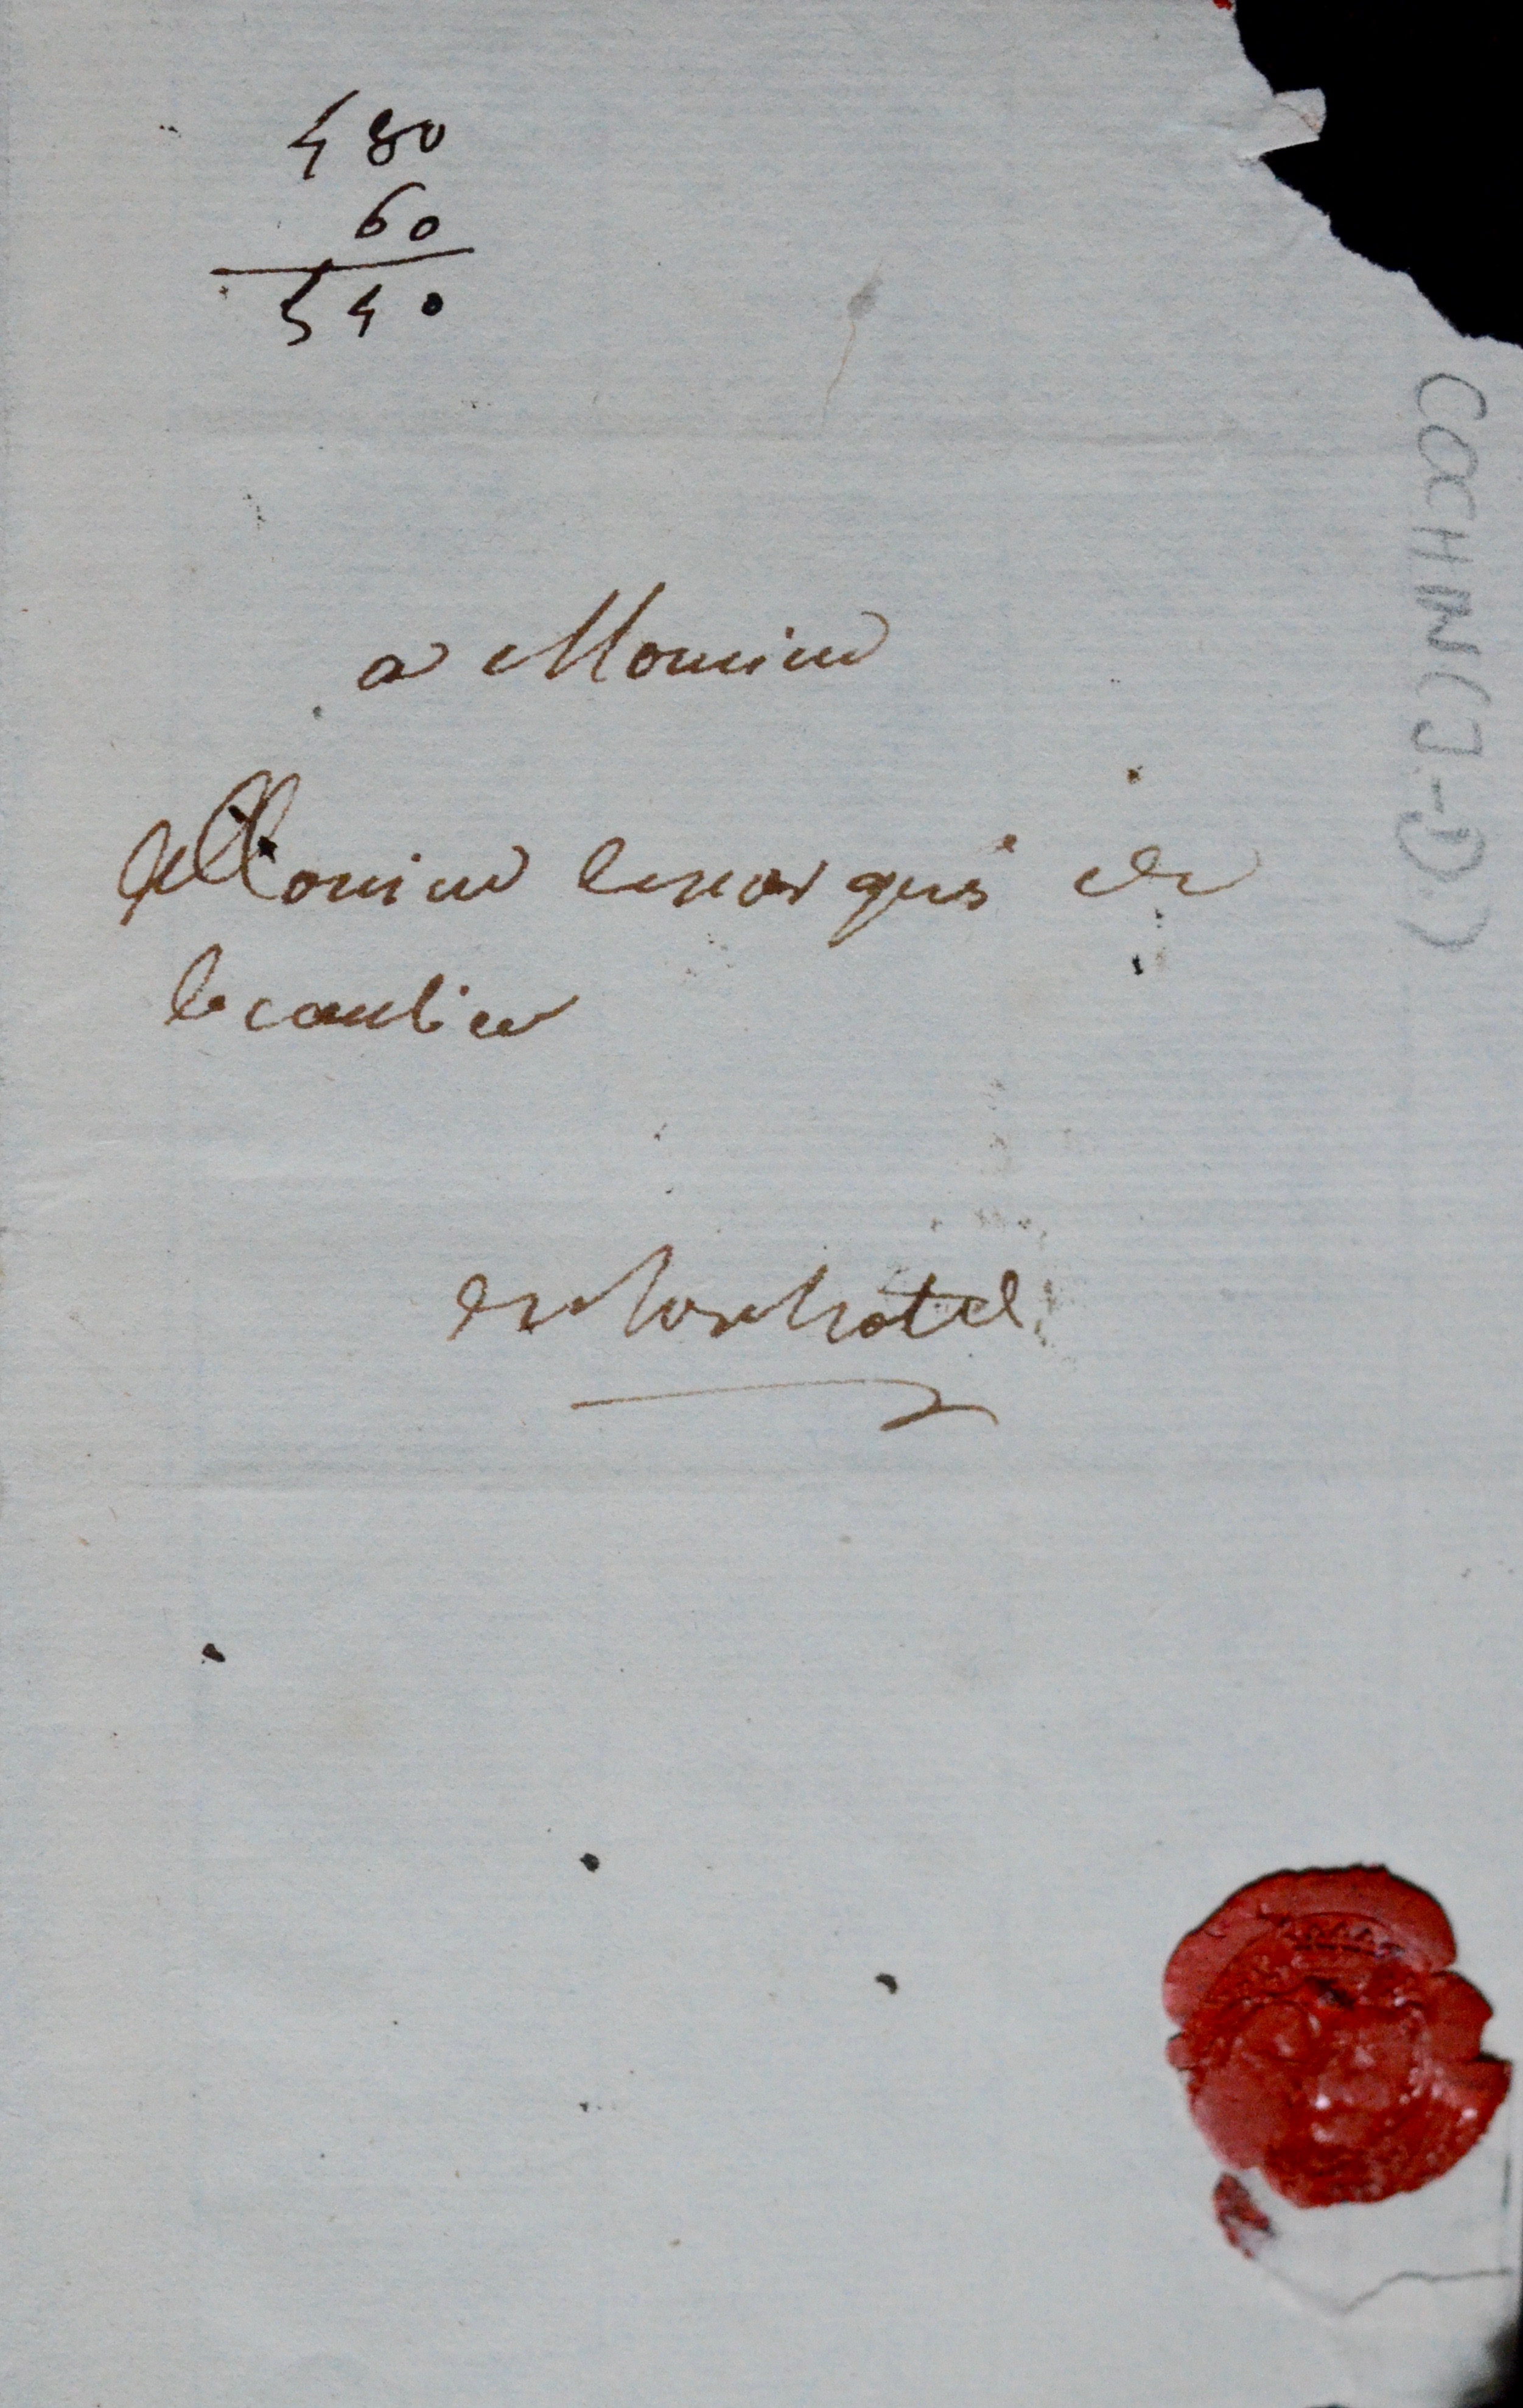 480
60
540
a Monsieur
Monsieur le marquis de
en son hotel
COCHIN (J-D.)